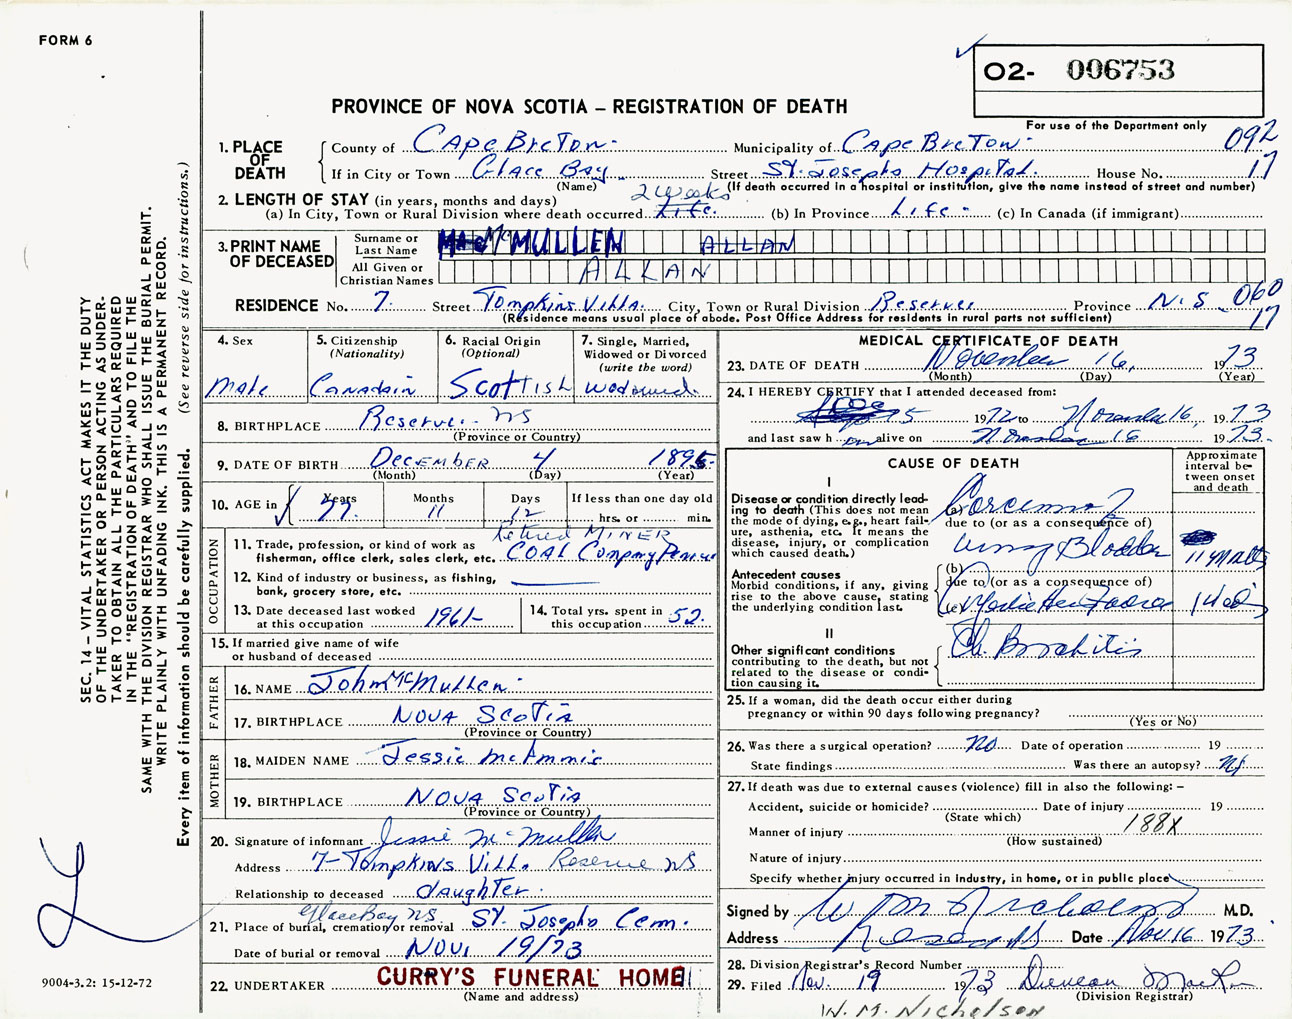 FORM 6
O2- 006753
PROVINCE OF NOVA SCOTIA – REGISTRATION OF DEATH
For use of the Department only
092
17
1. PLACE OF DEATH
County of Cape Breton
Municipality of Cape Breton
If in City or Town Glace Bay
(Name)
Street St. Josephs Hospital
House No.
(If death occurred in a hospital or institution, give the name instead of street and number)
2. LENGTH OF STAY (in years, months and days)
2 weeks
(a) In City, Town or Rural Division where death occurred Life (b) In Province Life (c) In Canada (if immigrant)
3. PRINT NAME OF DECEASED
Surname or Last Name McMULLEN ALLAN
All Given or Christian Names ALLAN
RESIDENCE No. 7 Street Tompkins Villa City, Town or Rural Division Reserve Province N.S. 060
17
(Residence means usual place of abode. Post Office Address for residents in rural parts not sufficient)
4. Sex
Male
5. Citizenship
(Nationality)
Canadain
6. Racial Origin
(Optional)
Scottish
7. Single, Married, Widowed or Divorced
(write the word)
Wodowed
8. BIRTHPLACE Reserve NS
(Province or Country)
9. DATE OF BIRTH December 4 1895
(Month) (Day) (Year)
10. AGE in
Years 77
Months 11
Days 12
If less than one day old
hrs. or min.
OCCUPATION
11. Trade, profession, or kind of work as fisherman, office clerk, sales clerk, etc.
Retired MINER
COAL Company
12. Kind of industry or business, as fishing, bank, grocery store, etc.
13. Date deceased last worked at this occupation 1961
14. Total yrs. spent in this occupation 52
15. If married give name of wife or husband of deceased
FATHER
16. NAME John McMullen
17. BIRTHPLACE NOVA SCOTIA
(Province or Country)
MOTHER
18. MAIDEN NAME Jessie
19. BIRTHPLACE NOVA SCOTIA
(Province or Country)
20. Signature of informant Jessie McMullen
Address 7- Tompkins Vill. Reserve NS
Relationship to deceased daughter
21. Place of burial, cremation or removal Glace Bay NS St. Josephs Cem.
Date of burial or removal NOV. 19/73
22. UNDERTAKER CURRY'S FUNERAL HOME
(Name and address)
MEDICAL CERTIFICATE OF DEATH
23. DATE OF DEATH November 16, 1973
(Month) (Day) (Year)
24. I HEREBY CERTIFY that I attended deceased from:
1972 to November 16, 1973
and last saw h im alive on November 16 1973
CAUSE OF DEATH
Approximate interval between onset and death
I
Disease or condition directly leading to death (This does not mean the mode of dying, e.g., heart failure, asthenia, etc. It means the disease, injury, or complication which caused death.)
(a) Carcinoma
due to (or as a consequence of)
(b) Bladder
11 months
Antecedent causes
Morbid conditions, if any, giving rise to the above cause, stating the underlying condition last.
due to (or as a consequence of)
(c)
II
Other significant conditions contributing to the death, but not related to the disease or condition causing it.
Ch. Bronchitis
25. If a woman, did the death occur either during pregnancy or within 90 days following pregnancy?
(Yes or No)
26. Was there a surgical operation? No Date of operation 19
State findings Was there an autopsy? No
27. If death was due to external causes (violence) fill in also the following: –
Accident, suicide or homicide? Date of injury 19
(State which)
188X
Manner of injury
(How sustained)
Nature of injury
Specify whether injury occurred in industry, in home, or in public place
Signed by W M Nicholson M.D.
Address Reserve NS Date Nov 16 1973
28. Division Registrar's Record Number
29. Filed Nov. 19 1973 Duncan
(Division Registrar)
W. M. Nicholson
SEC. 14 – VITAL STATISTICS ACT MAKES IT THE DUTY
OF THE UNDERTAKER OR PERSON ACTING AS UNDER-
TAKER TO OBTAIN ALL THE PARTICULARS REQUIRED
IN THE "REGISTRATION OF DEATH" AND TO FILE THE
SAME WITH THE DIVISION REGISTRAR WHO SHALL ISSUE THE BURIAL PERMIT.
WRITE PLAINLY WITH UNFADING INK. THIS IS A PERMANENT RECORD.
Every item of information should be carefully supplied. (See reverse side for instructions.)
9004-3.2: 15-12-72